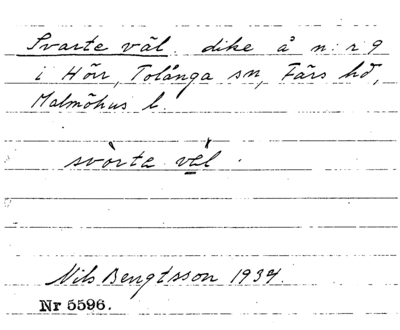 Svarte väl. dike å n:r 9
i Hörr, Tolånga sn, Färs hd,
Malmöhus l.
svòrte vęl .
Nils Bengtsson 1934.
Nr 5596.